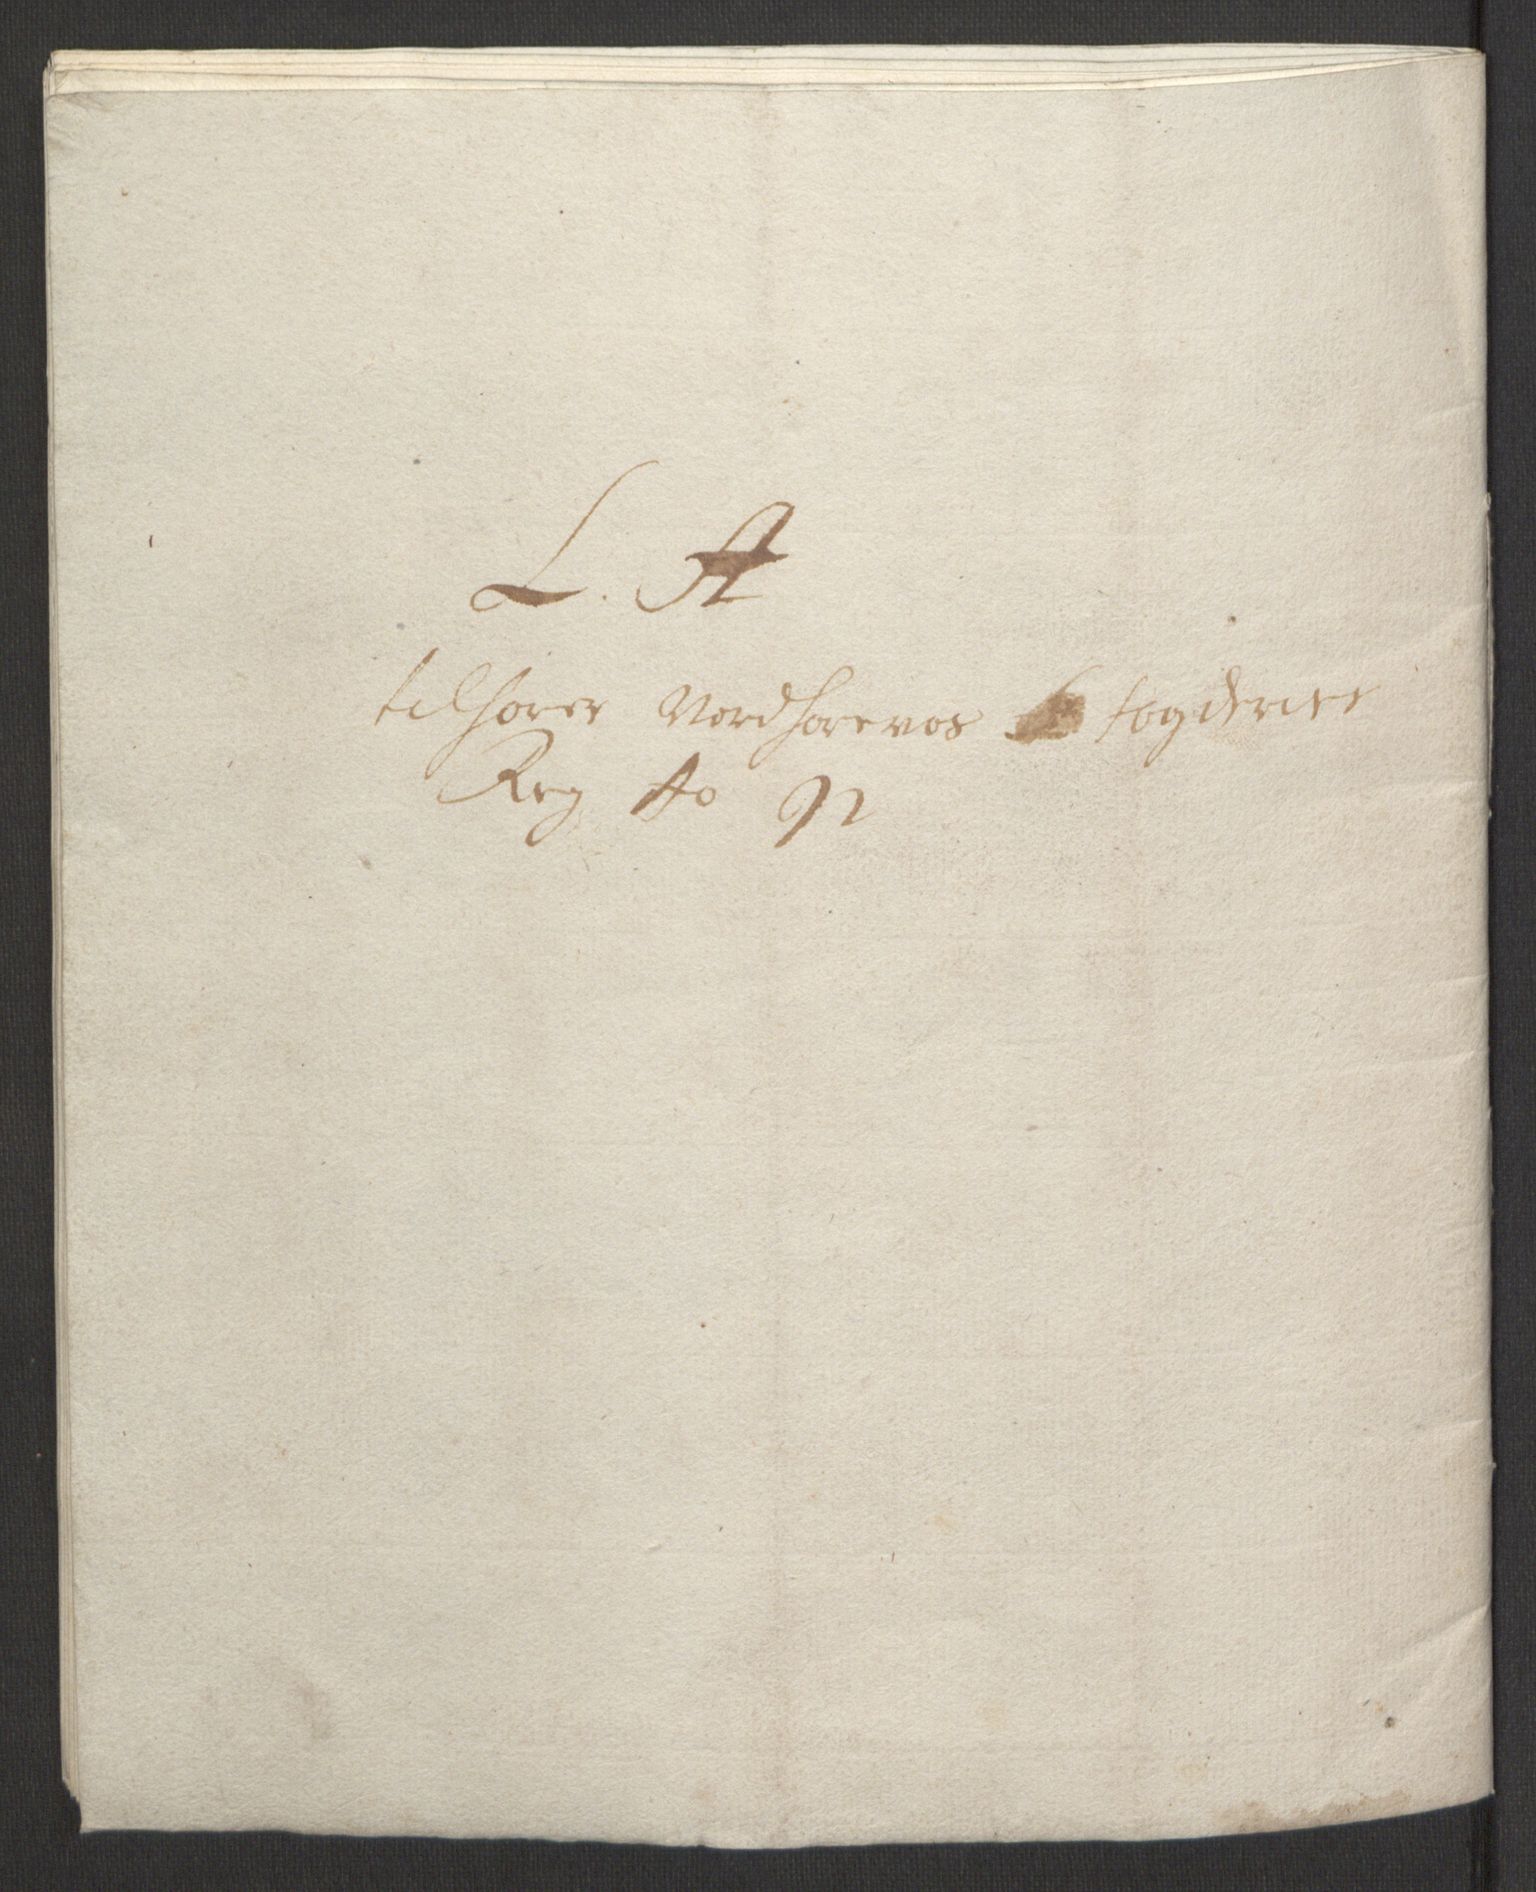 L. A
tilhører Nordhorevos fogderiee
Reg Ao 92